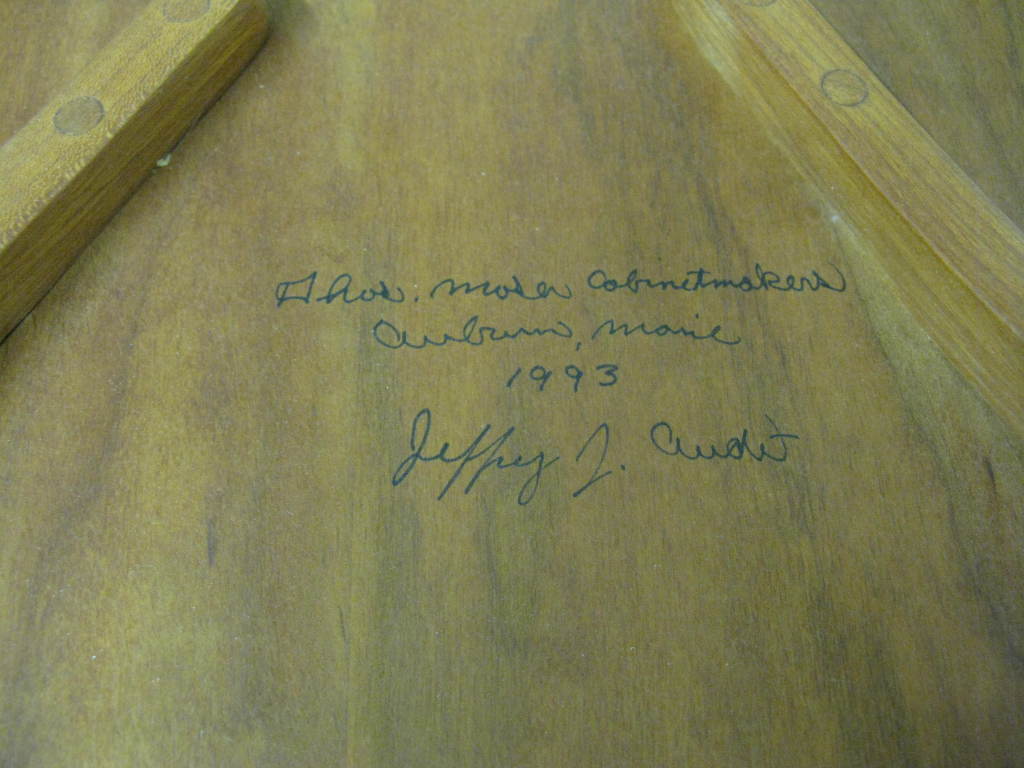 Thos. Moser Cabinetmakers
Auburn, Maine
1993
Jeffrey J. Audet